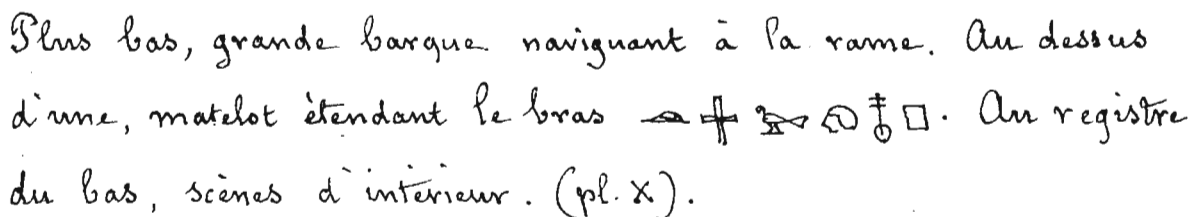 Plus bas, grande barque naviguant à la rame. Au dessus
d'une, matelot étendant le bras . Au registre
du bas, scènes d'intérieur. (pl. X).